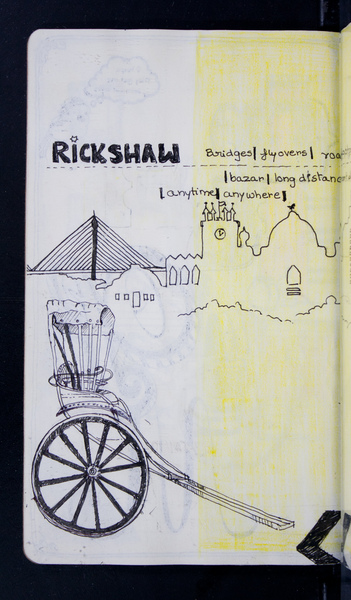 RICKSHAW
Bridges| flyovers| roa
|bazar| long distance
[anytime| anywhere]